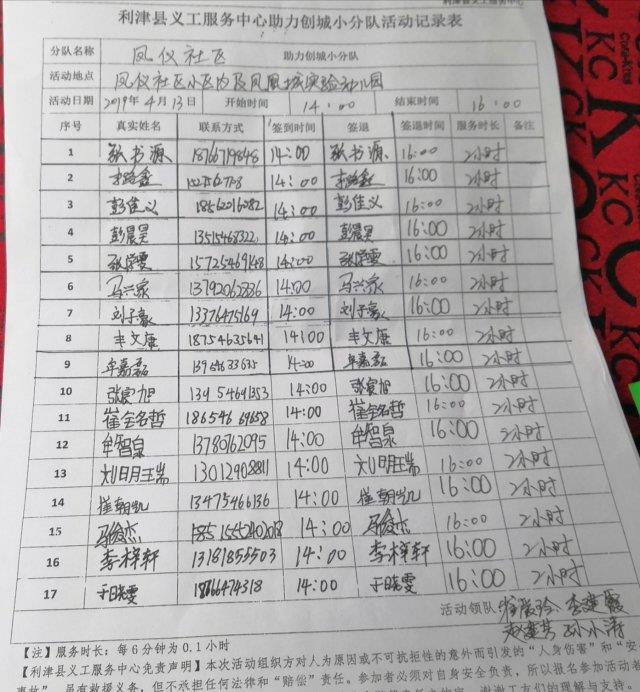 利津县义工服务中心
利津县义工服务中心助力创城小分队活动记录表
分队名称 凤仪社区 助力创城小分队
活动地点 凤仪社区小区内及凤凰城实验幼儿园
活动日期 2019年4月13日 开始时间 14:00 结束时间 16:00
序号 真实姓名 联系方式 签到时间 签退 签退时间 服务时长 备注
1 张书源 18766719848 14:00 张书源 16:00 2小时
2 14:00 16:00 2小时
3 彭佳义 18562016082 14:00 彭佳义 16:00 2小时
4 彭晨昊 13515468322 14:00 彭晨昊 16:00 2小时
5 15725469148 14:00 16:00 2小时
6 马兴家 13792062336 14:00 马兴家 16:00 2小时
7 刘子豪 13376475169 14:00 刘子豪 16:00 2小时
8 丰文康 18754635641 14:00 丰文康 16:00 2小时
9 牟嘉磊 14:00 牟嘉磊 16:00 2小时
10 14:00 16:00 2小时
11 崔铭哲 18654669658 14:00 崔铭哲 16:00 2小时
12 牟智泉 13780762095 14:00 牟智泉 16:00 2小时
13 刘明瑞 13012908811 14:00 刘明瑞 16:00 2小时
14 崔朝凯 13475466136 14:00 崔朝凯 16:00 2小时
15 14:00 16:00 2小时
16 李梓轩 13181855503 14:00 李梓轩 16:00 2小时
17 于晓雯 18766474318 14:00 于晓雯 16:00 2小时
活动领队
【注】服务时长：每6分钟为0.1小时
【利津县义工服务中心免责声明】本次活动组织方对人为原因或不可抗拒性的意外而引发的“人身伤害”和“安
事故”，虽有救援义务，但不承担任何法律和“赔偿”责任。参加者必须对自身安全负责，所以报名参加活动者
们的理解与支持。
KC
KC
KC